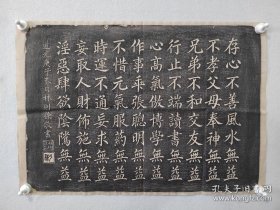 存心不善風水無益
不孝父母奉神無益
兄弟不和交友無益
行止不端讀書無益
心高氣傲博學無益
作事乖張聰明無益
不惜元氣服藥無益
時運不通妄求無益
妄取人財佈施無益
淫惡肆慾陰騭無益
林則徐書
孔夫子旧书网